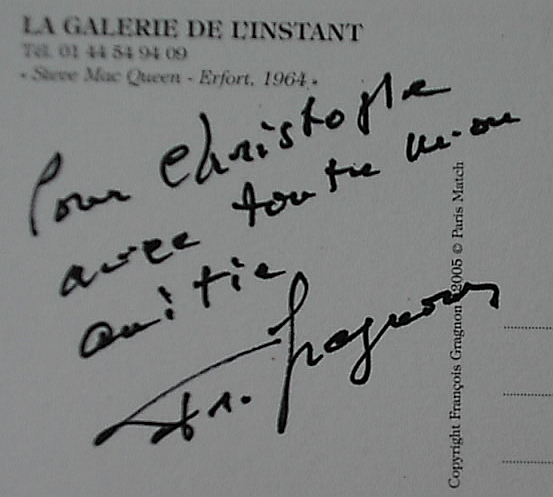 LA GALERIE DE L'INSTANT
Tél. 01 44 54 94 09
« Steve Mac Queen - Erfort, 1964 »
Pour Christophe
avec toute mon
amitié
Fr. Gragnon
Copyright François Gragnon 2005 © Paris Match